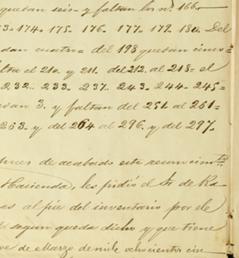 quesan seis y faltan los nos 166.
3. 174. 175. 176. 177. 178. 180. Del
dan cuatro del 198 quesan cinco
el 210. y 211. del 212. al 218. el
232.. 233. 237. 243. 244. 245.
san 3. y faltan del 251 al 261
263. y del 264 al 296. y del 297.
de acabado este
Hacienda, les pidió el Sr de
as al pie del inventario por el
segun queda dicho y que tiene
ve de Marzo de mil